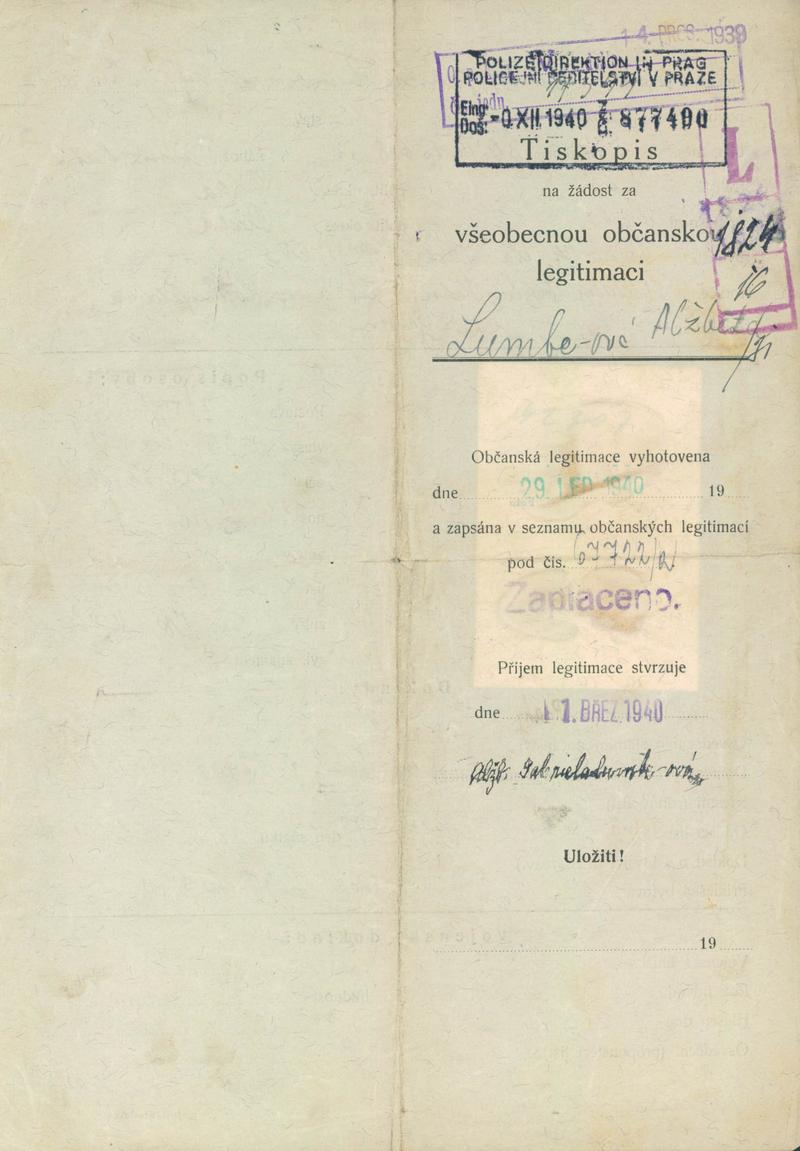 14. PROS. 1939
POLIZEIDIREKTION IN PRAG
POLICEJNÍ ŘEDITELSTVÍ V PRAZE
Eing.
Doš. XII 1940 Z. Č. 877490
Tiskopis
na žádost za
L
všeobecnou občanskou
1824
legitimaci
16
Lumbe-ová Alžběta
Občanská legitimace vyhotovena
dne 29. LED. 1940 19
a zapsána v seznamu občanských legitimací
pod čís.
Zaplaceno.
Příjem legitimace stvrzuje
dne 1. BŘEZ. 1940
Alžb. Gabriela Lumbe-ová
Uložiti!
19